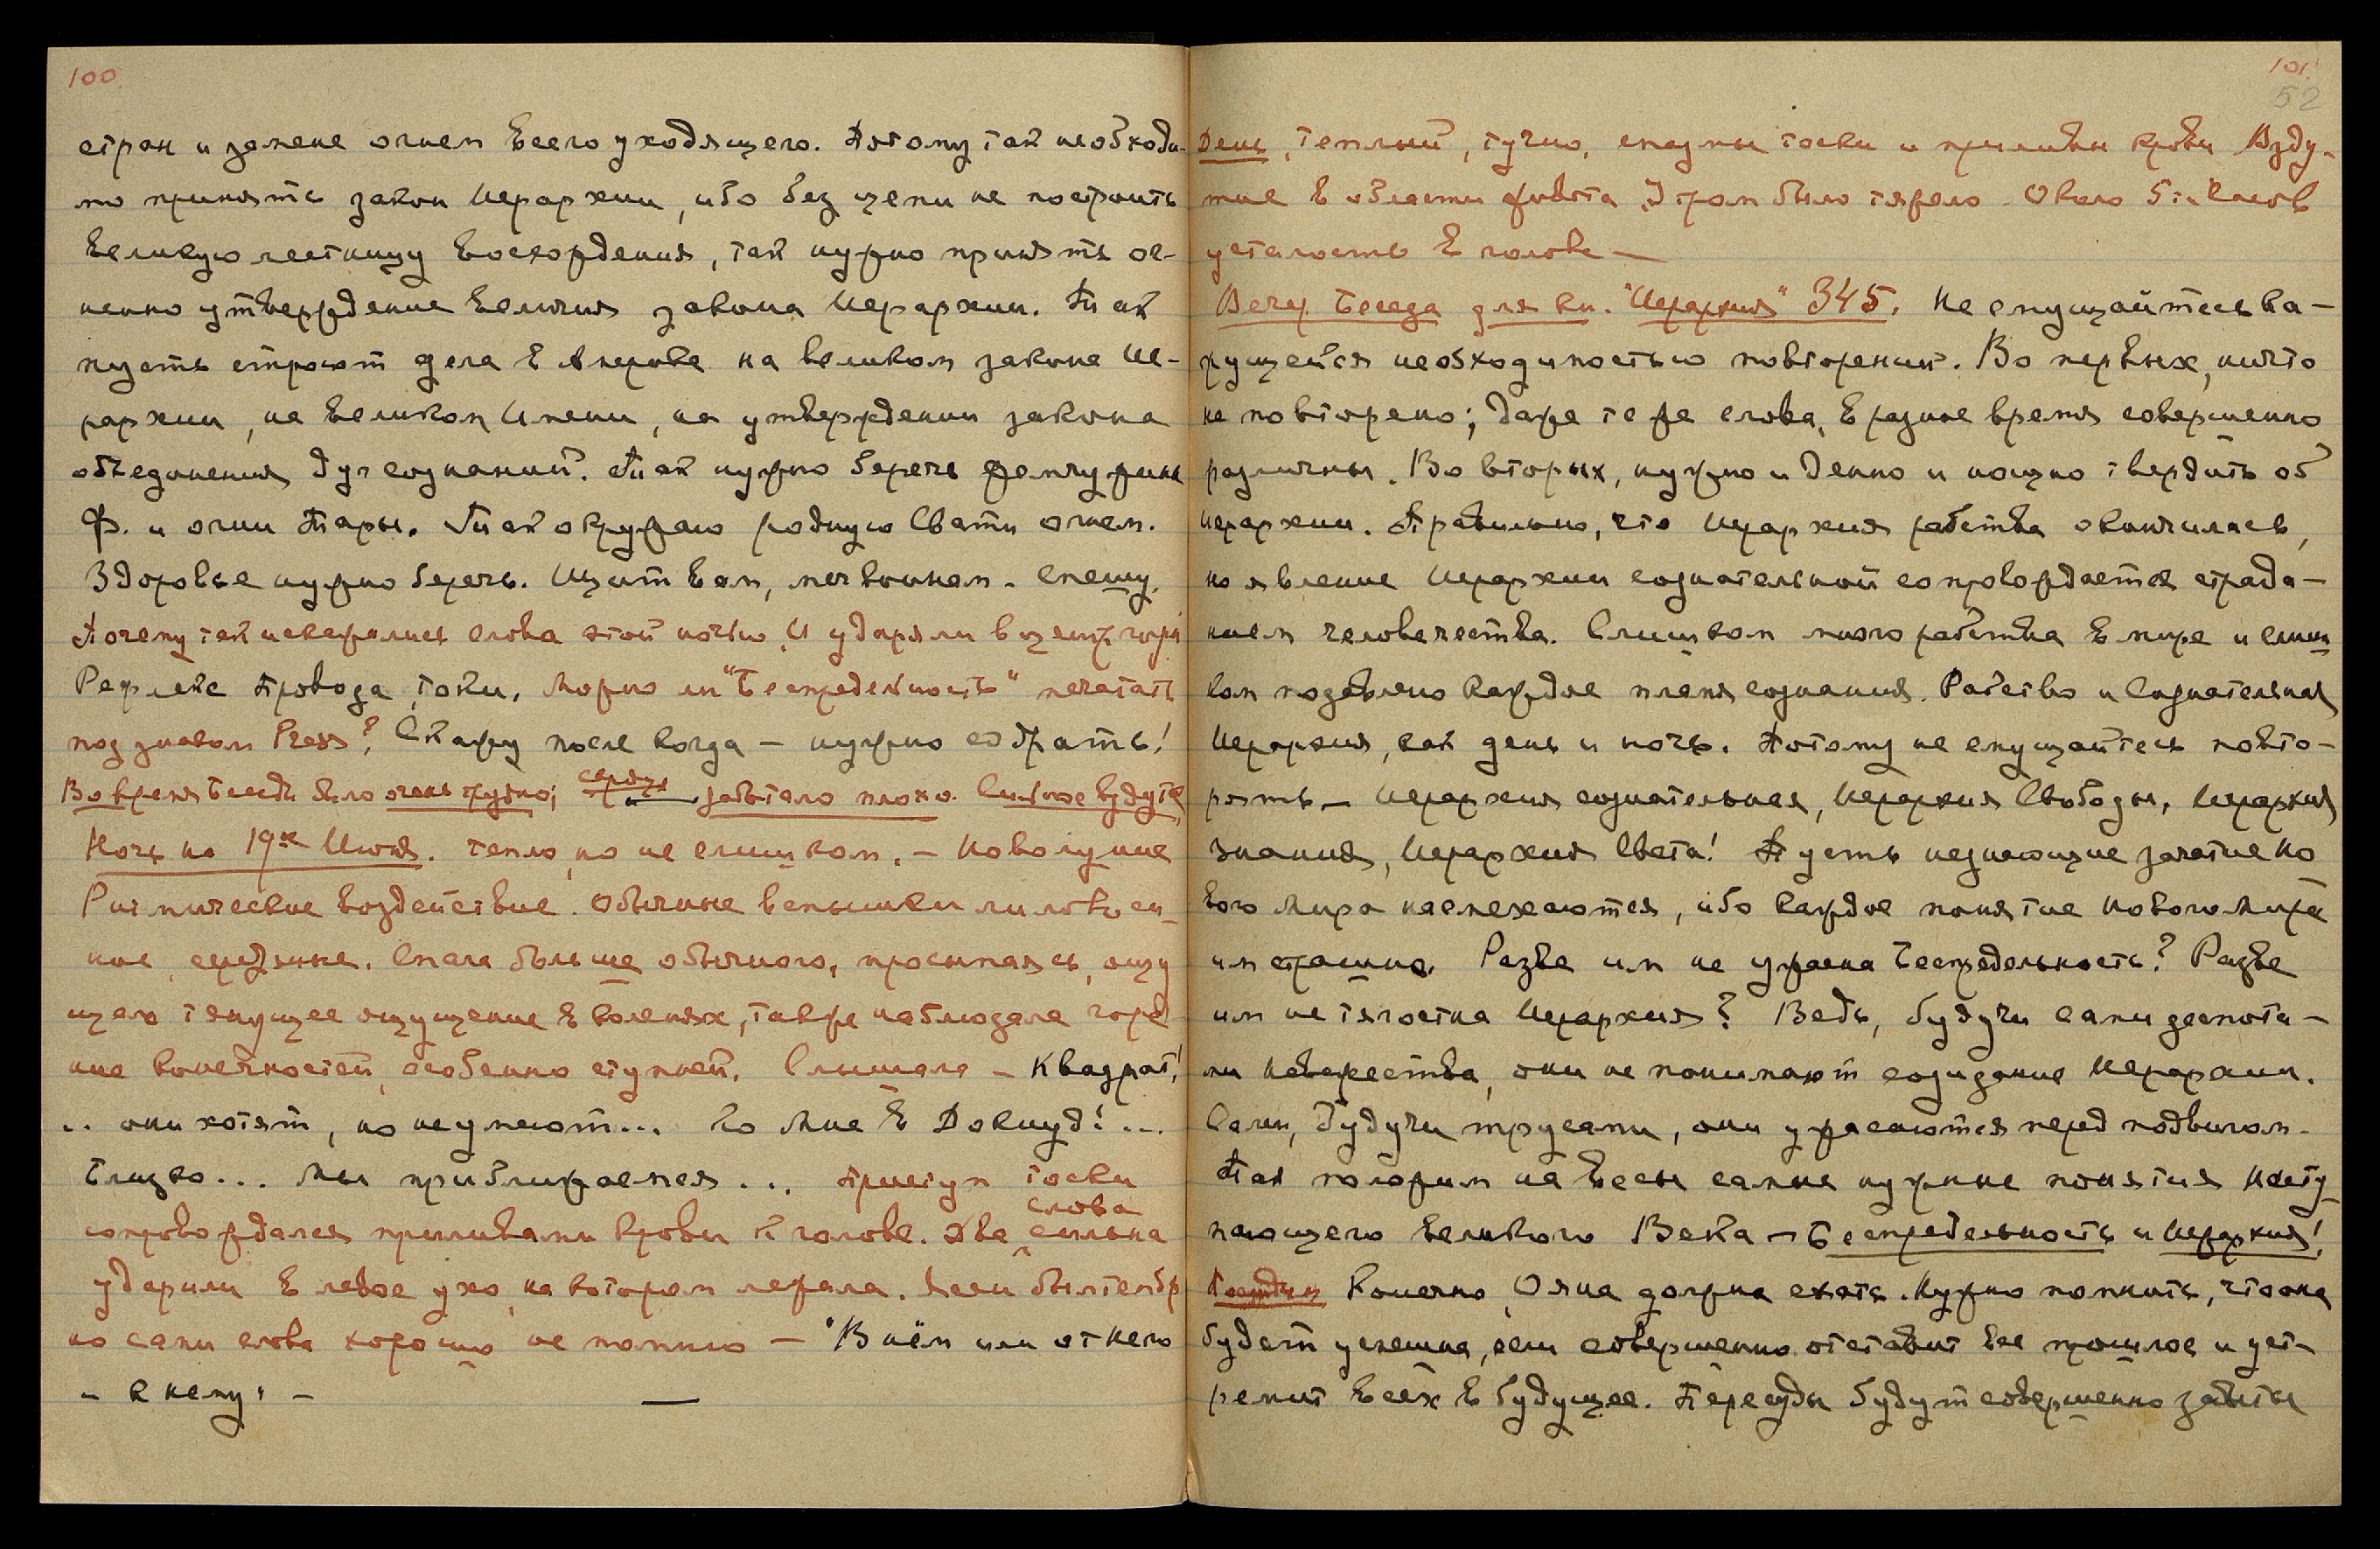 100.
стран и замене огнем всего уходящего. Потому так необходи-
мо принять закон Иерархии, ибо без цепи не построить
великую лестницу восхождения, так нужно принять ог-
ненно утверждение величия закона Иерархии. Так
пусть строют дела в Америке на великом законе Ие-
рархии, на великом Имени, на утверждении закона
объединения дух сознаний. Так нужно беречь жемчужине
Ф. и огни Тары. Так окружаю родную Свати огнем.
Здоровье нужно беречь. Щит вам, меч воинам. Спешу.
Почему так исказились слова этой ночью. И ударяли в центр горла
Рефлекс провода, токи. Можно ли "Беспредельность" печатать
под знаком Press? Скажу после когда – нужно собрать!
Во время Беседы было очень трудно; сердце работало плохо. Сильное вздутие
Ночь на 19ое Июля. Тепло, но не слишком. – Новолуние
Ритмическое воздействие. Обычные вспышки лилово си-
ние, серебряные. Спала больше обычного, просыпаясь, ощу
щаю тянущее ощущение в коленях, также наблюдала горе-
ние конечностей, особенно ступней. Слышала – Квадрат!
.. они хотят, но не умеют... Ко Мне в Докиуд!...
Близко... Мы приближаемся... Приступ тоски
сопровождался приливами крови к голове. Два слова сильно
ударили в левое ухо, на котором лежала. Ясен был тембр
но сами слова хорошо не помню – "В нём или от него
– к нему" –
101.
52
День, теплый, тучно, спазмы тоски и приливы крови Взду-
тие в области живота. Утром было тяжело. Около 5ти часов
усталость в голове —
Вечер. Беседа для кн. "Иерархия" 345. Не смущайтесь ка-
жущейся необходимостью повторений. Во первых, ничто
не повторено; даже те же слова, в разное время совершенно
различны. Во вторых, нужно и денно и нощно твердить об
Иерархии. Правильно, что Иерархия рабства окончилась,
но явление Иерархии сознательной сопровождается страда-
нием человечества. Слишком много рабства в мире и слиш
ком подавлено каждое пламя сознания. Рабство и Сознательная
Иерархия, как день и ночь. Потому не смущайтесь повто-
рять – Иерархия сознательная, Иерархия Свободы, Иерархия
Знания, Иерархия Света! Пусть незнающие зачатие Но
вого Мира насмехаются, ибо каждое понятие Нового Мира
им страшно. Разве им не ужасна Беспредельность? Разве
им не тягостна Иерархия? Ведь, будучи сами деспота-
ми невежества, они не понимают созидание Иерархии.
Сами, будучи трусами, они ужасаются перед подвигом.
Так положим на Весы самые нужные понятия насту-
пающего великого Века – Беспредельность и Иерархия!
Конечно, Ояна должна ехать. Нужно помнить, что она
будет успешна, если совершенно отставит все прошлое и уст-
ремит всех в будущее. Пересуды будут совершенно забыты